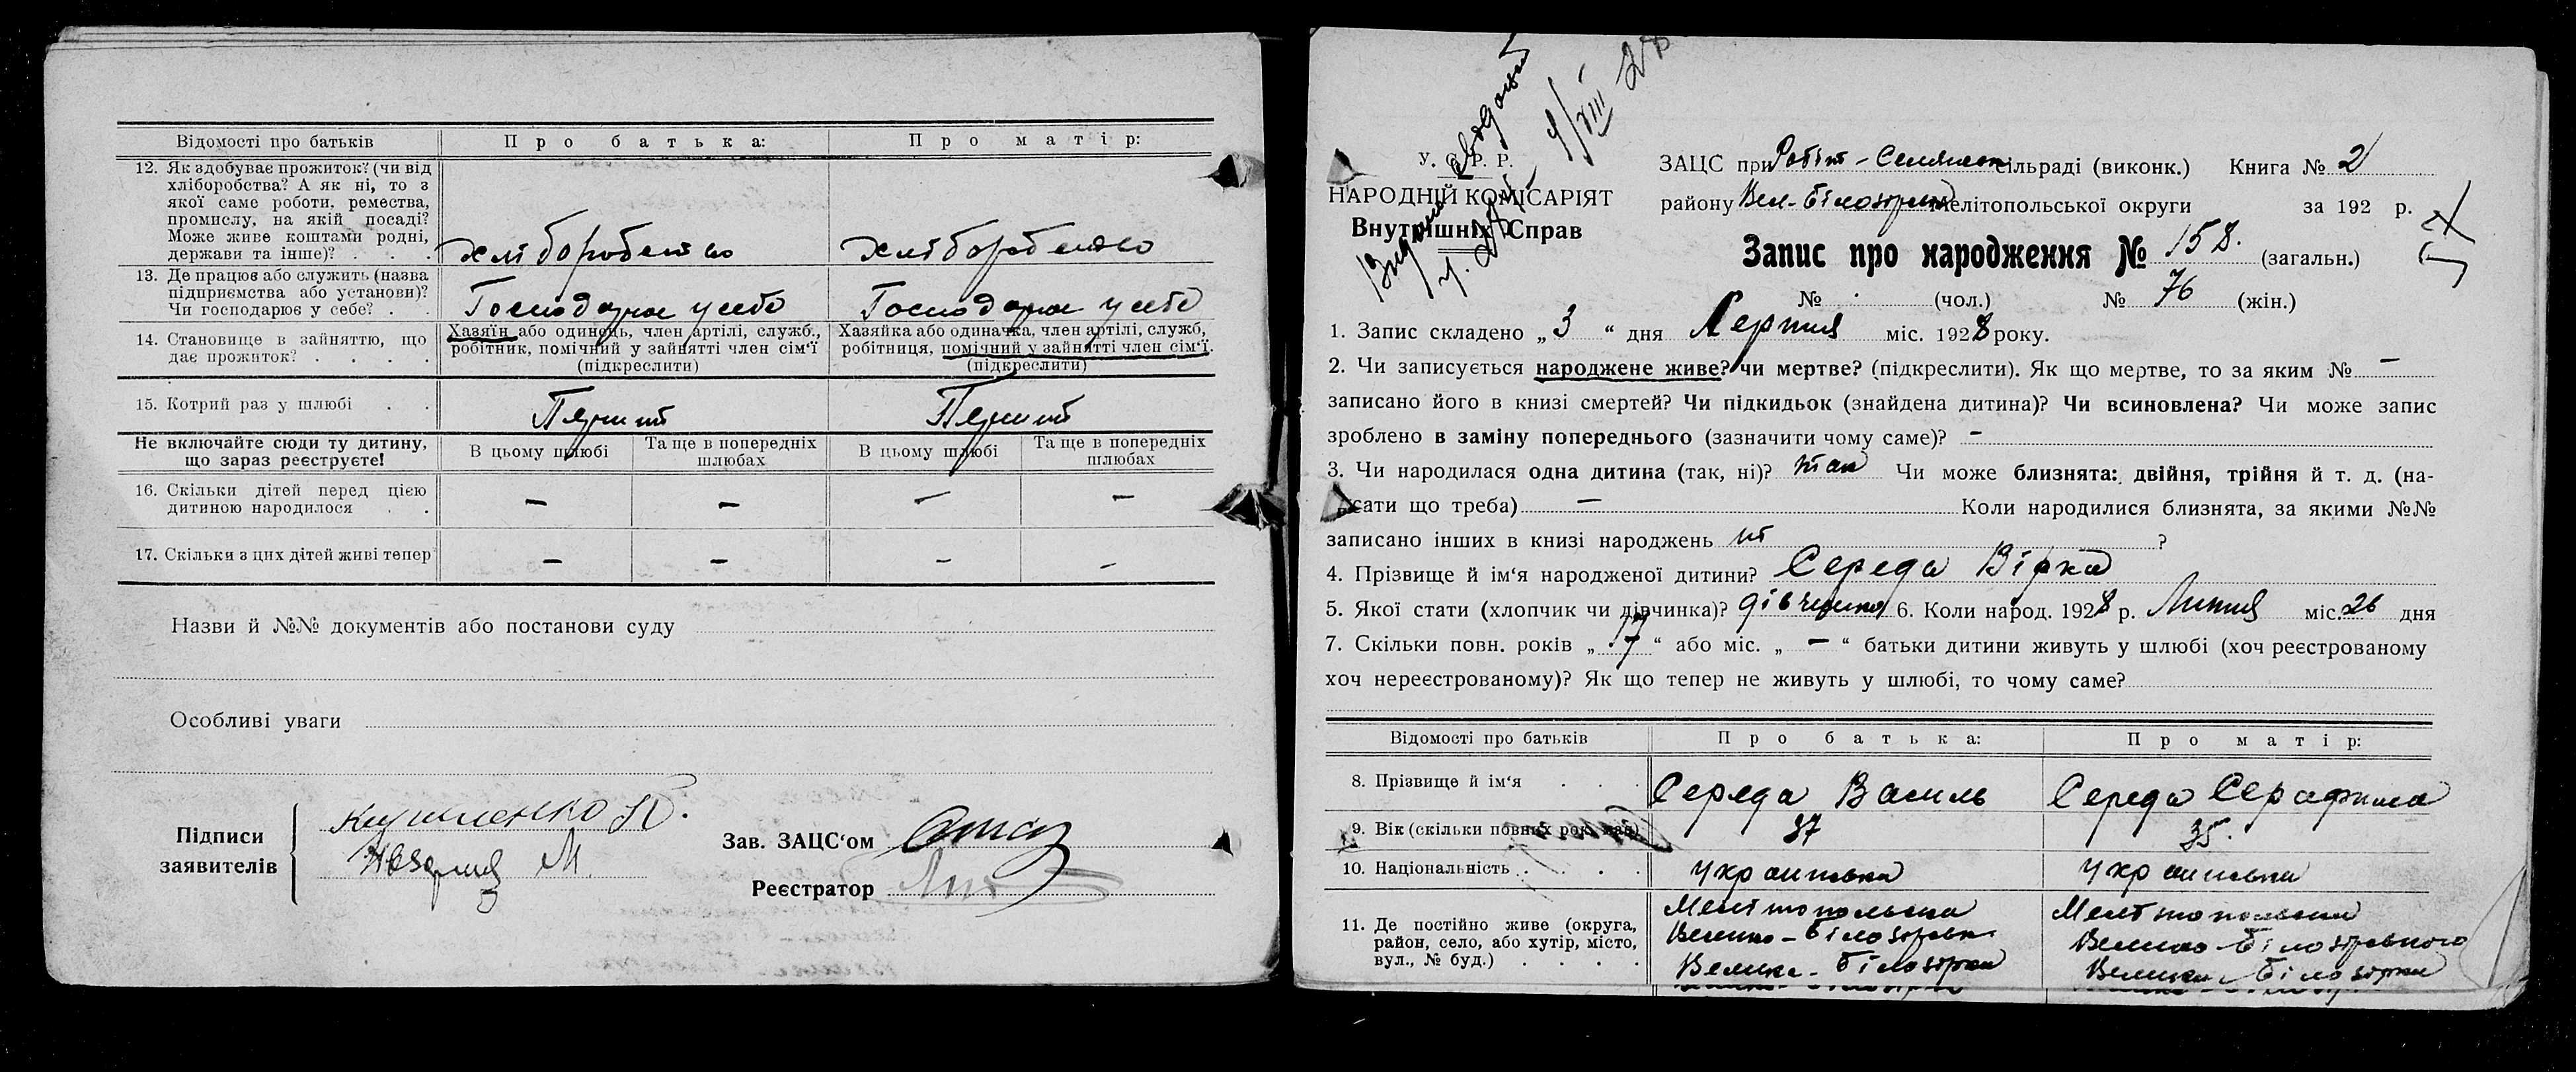 Відомості про батьків
Про батька:
Про матір:
12. Як здобуває прожиток? (чи від
хліборобства? А як ні, то з
якої саме роботи, ремества,
промислу, на якій посаді?
Може живе коштами родні,
держави та інше)? . . .
хліборобство
хліборобство
13. Де працює або служить (назва
підприємства або установи)?
Чи господарює у себе? . .
Господарює у себе
Господарює у себе
14. Становище в зайняттю, що
дає прожиток? . . . .
Хазяїн або одинець, член артілі, служб.,
робітник, помічний у зайнятті член сім'ї
(підкреслити)
Хазяйка або одиначка, член артілі, служб,
робітниця, помічний у зайнятті член сім'ї.
(підкреслити)
15. Котрий раз у шлюбі . .
Перший
Перший
Не включайте сюди ту дитину,
що зараз реєструєте!
В цьому шлюбі
Та ще в попередніх
шлюбах
В цьому шлюбі
Та ще в попередніх
шлюбах
16. Скільки дітей перед цією
дитиною народилося . .
— — — —
17. Скільки з цих дітей живі тепер
— — — —
Назви й №№ документів або постанови суду
Особливі уваги
Підписи
заявителів
Зав. ЗАЦС'ом
Реєстратор
У. С. Р. Р.
НАРОДНІЙ КОМІСАРІЯТ
Внутрішніх Справ
4/VIII 28
ЗАЦС при Робіт-Селянск сільраді (виконк.) Книга № 2
району Вел-Білозірськ Мелітопольської округи за 192 р.
Запис про народження № 158. (загальн.)
№ (чол.) № 76 (жін.)
1. Запис складено „3“ дня Серпня міс. 1928 року.
2. Чи записується народжене живе? чи мертве? (підкреслити). Як що мертве, то за яким № —
записано його в книзі смертей? Чи підкидьок (знайдена дитина)? Чи всиновлена? Чи може запис
зроблено в заміну попереднього (зазначити чому саме)? —
3. Чи народилася одна дитина (так, ні)? так Чи може близнята: двійня, трійня й т. д. (на-
писати що треба) — Коли народилися близнята, за якими №№
записано інших в книзі народжень ні ?
4. Прізвище й ім'я народженої дитини? Середа Вірка
5. Якої стати (хлопчик чи дівчинка)? дівчинка 6. Коли народ. 1928 р. Липня міс. 26 дня
7. Скільки повн. років „17“ або міс. „—“ батьки дитини живуть у шлюбі (хоч реєстрованому
хоч нереєстрованому)? Як що тепер не живуть у шлюбі, то чому саме?
Відомості про батьків
Про батька:
Про матір:
8. Прізвище й ім'я . . .
Середа Василь
Середа Серафима
9. Вік (скільки повних рок. має)
37
35.
10. Національність . . . .
українська
українська
11. Де постійно живе (округа,
район, село, або хутір, місто,
вул., № буд.) . . . .
Мелітопольська
Велико-Білозірськ
Велика-Білозірка
Мелітопольська
Велико-Білозірського
Велика-Білозірка